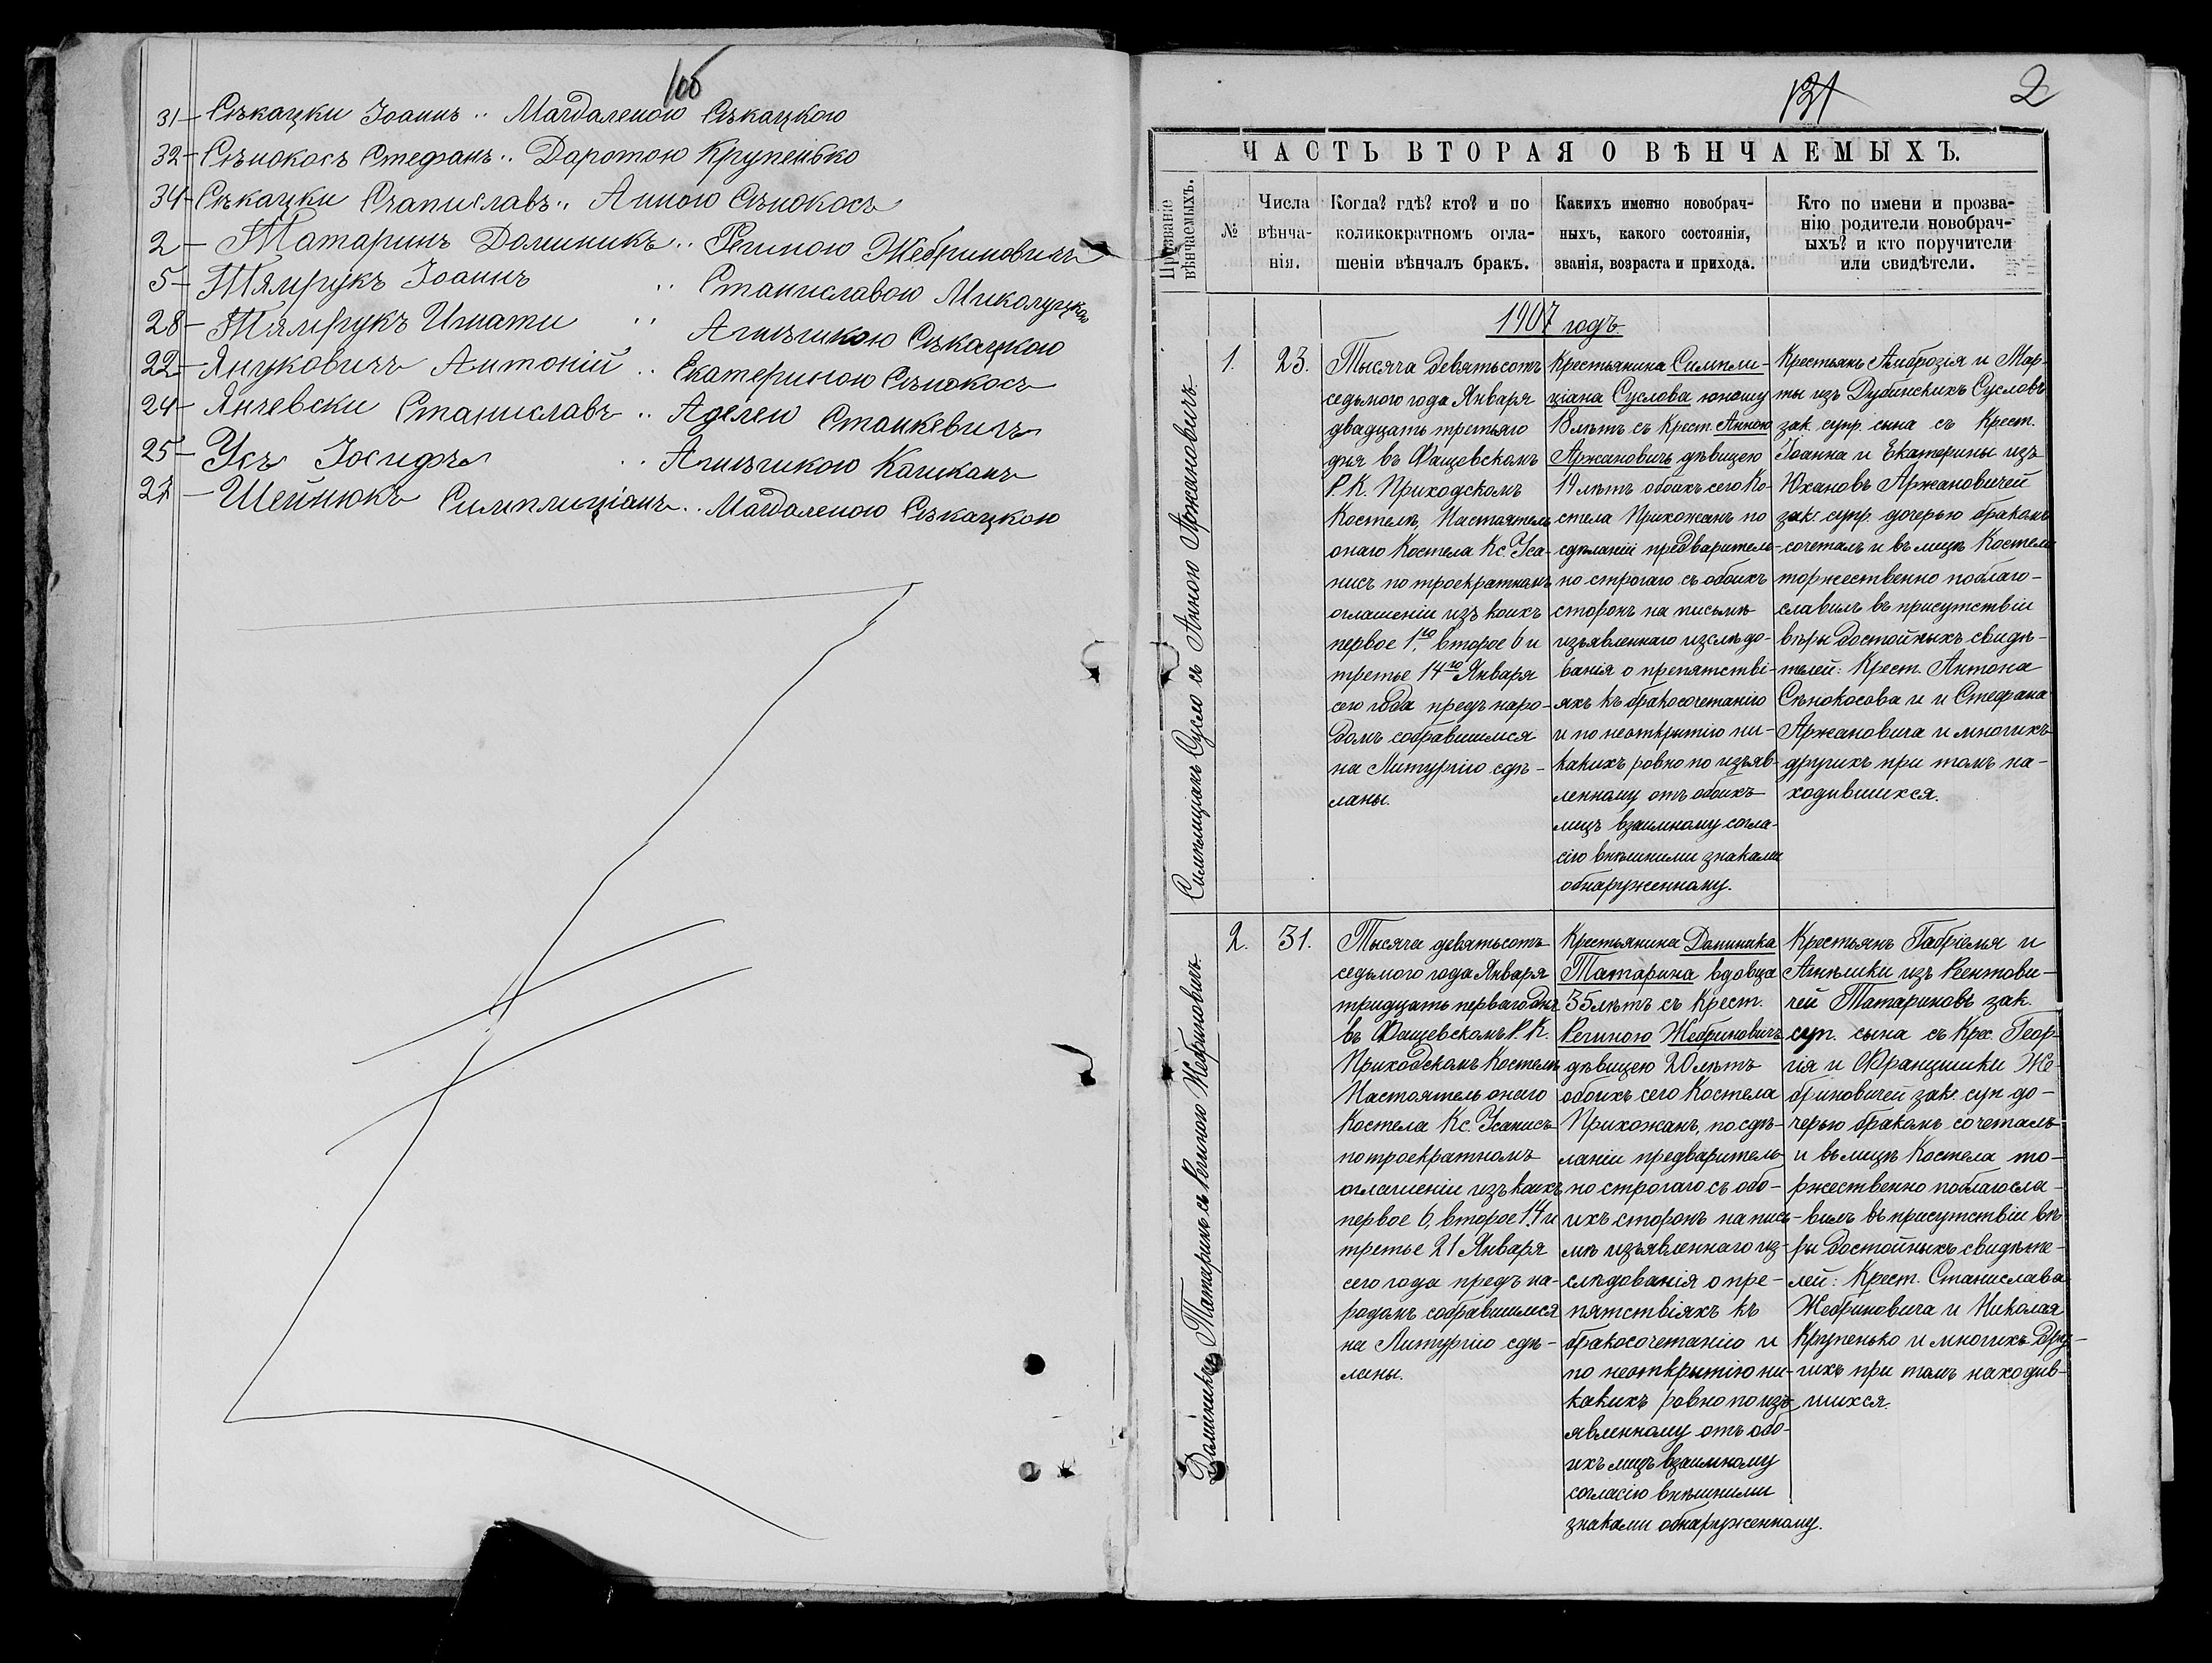 100
31 - Сѣкацки Іоаннъ ,, Магдаленою Сѣкацкою
32 - Сѣнокосъ Стефанъ ,, Даротою Крупенько
34 - Сѣкацки Станиславъ ,, Анною Сѣнокосъ
2 - Татаринъ Доминикъ ,, Региною Жебриновичъ
5 - Тямрукъ Іоаннъ ,, Станиславою Миколуцкою
28 - Тямрукъ Игнати ,, Агнѣшкою Сѣкацкою
22 - Януковичъ Антоній ,, Екатериною Сѣнокосъ
24 - Янчевски Станиславъ ,, Аделею Станкевичъ
25 - Усъ Іосифъ ,, Агнѣшкою Кашканъ
27 - Шейнюкъ Симплиціанъ ,, Магдаленою Сѣкацкою
131
2
ЧАСТЬ ВТОРАЯ О ВѢНЧАЕМЫХЪ.
Прозваніе
вѣнчаемыхъ.
№
Числа
вѣнча-
нія.
Когда? гдѣ? кто? и по
коликократномъ огла-
шеніи вѣнчалъ бракъ.
Какихъ именно новобрач-
ныхъ, какого состоянія,
званія, возраста и прихода.
Кто по имени и прозва-
нію родители новобрач-
ыхъ? и кто поручители
или свидѣтели.
1907 годъ.
Симплиціанъ Сусло съ Анною Аржановичъ.
1.
23.
Тысяча девятьсотъ
седьмого года Января
двадцать третьяго
дня въ Фащевскомъ
Р. К. Приходскомъ
Костелѣ, Настоятель
онаго Костела Кс. Уса-
нисъ по троекратномъ
оглашеніи изъ коихъ
первое 1го, второе 6 и
третье 14го Января
сего года предъ наро-
домъ собравшимся
на Литургію сдѣ-
ланы.
Крестьянина Симпли-
ціана Суслова юношу
18 лѣтъ съ Крест. Анною
Аржановичъ дѣвицею
19 лѣтъ обоихъ сего Ко-
стела Прихожанъ по
сдѣланіи предваритель-
но строгаго съ обоихъ
сторонъ на письмѣ
изъявленнаго изслѣдо-
ванія о препятстві-
яхъ къ бракосочетанію
и по неоткрытію ни-
какихъ ровно по изъяв-
ленному отъ обоихъ
лицъ взаимному согла-
сію внѣшними знаками
обнаруженному.
Крестьянъ Амброзія и Мар-
ты изъ Дубинскихъ Сусловъ
зак. супр. сына съ Крест.
Іоанна и Екатерины изъ
Юхановъ Аржановичей
зак. супр. дочерью бракомъ
сочеталъ и въ лицѣ Костела
торжественно поблаго-
славилъ въ присутствіи
вѣры достойныхъ свидѣ-
телей: Крест. Антона
Сѣнокосова и и Стефана
Аржановича и многихъ
другихъ при томъ на-
ходившихся.
Доминикъ Татаринъ съ Региною Жебриновичъ.
2.
31.
Тысяча девятьсотъ
седьмого года Января
тридцать перваго дня
въ Фащевскомъ Р. К.
Приходскомъ Костелѣ
Настоятель онаго
Костела Кс. Усанисъ
по троекратномъ
оглашеніи изъ коихъ
первое 6, второе 14 и
третье 21 Января
сего года предъ на-
родомъ собравшимся
на Литургію сдѣ-
ланы.
Крестьянина Доминика
Татарина вдовца
35 лѣтъ съ Крест.
Региною Жебриновичъ
дѣвицею 20 лѣтъ
обоихъ сего Костела
Прихожанъ, по сдѣ-
ланіи предваритель
но строгаго съ обо-
ихъ сторонъ на пись-
мѣ изъявленнаго из-
слѣдованія о пре-
пятствіяхъ къ
бракосочетанію и
по неоткрытію ни-
какихъ ровно по изъ
явленному отъ обо-
ихъ лицъ взаимному
согласію внѣшними
знаками обнаруженному.
Крестьянъ Габріеля и
Агнѣшки изъ Рентови-
чей Татариновъ зак.
суп. сына съ Крес. Геор-
гія и Францишки Же-
бриновичей зак. суп до-
черью бракомъ сочеталъ
и въ лицѣ Костела то-
ржественно поблагосла-
вилъ въ присутствіи вѣ-
ры достойныхъ свидѣте-
лей: Крест. Станислава
Жебриновича и Николая
Крупенько и многихъ дру-
гихъ при томъ находив-
шихся.